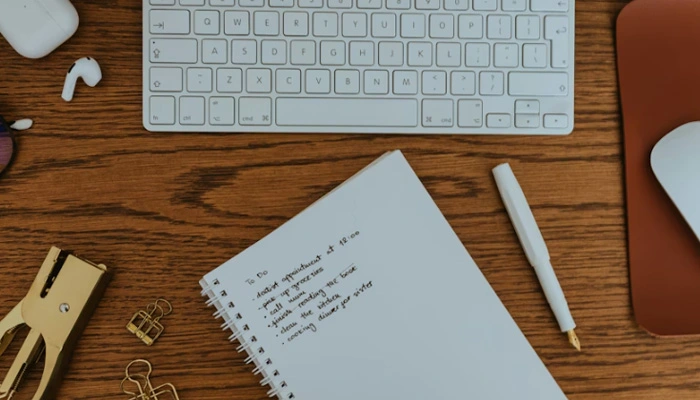 Q W E R T Y U I O P
A S D F G H J K L
Z X C V B N M
fn ctrl cmd cmd
To Do
• dentist appointment at 12:00
• pick up groceries
• call mum
• finish reading the book
• clean the kitchen
• cooking dinner for sister